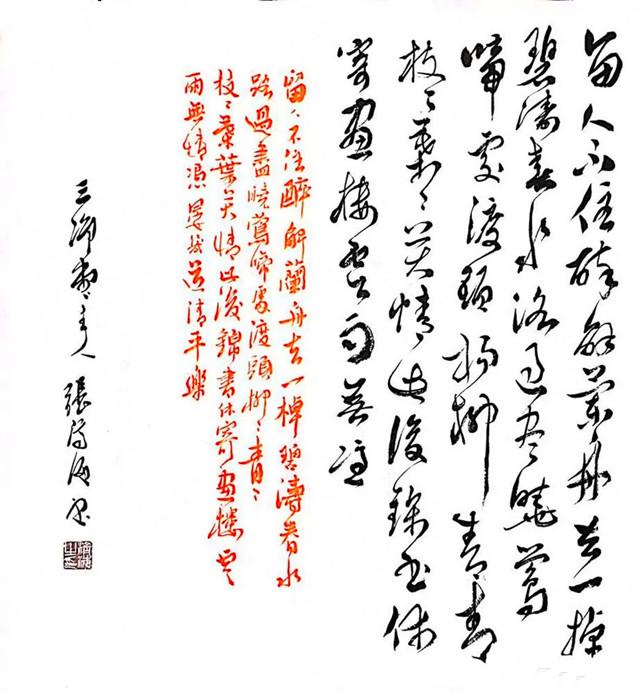 留人不住醉解蘭舟去一棹
碧濤春水路過盡曉鶯
啼處渡頭楊柳青青
枝〻葉〻情此後錦书休
寄画樓雲雨無憑
留〻不住醉解蘭舟去一棹碧濤春水
路過盡曉鶯啼處渡頭柳〻青〻
枝〻葉葉情此後錦書休寄画樓雲
雨無情憑晏幾道清平樂
三主人 張海书